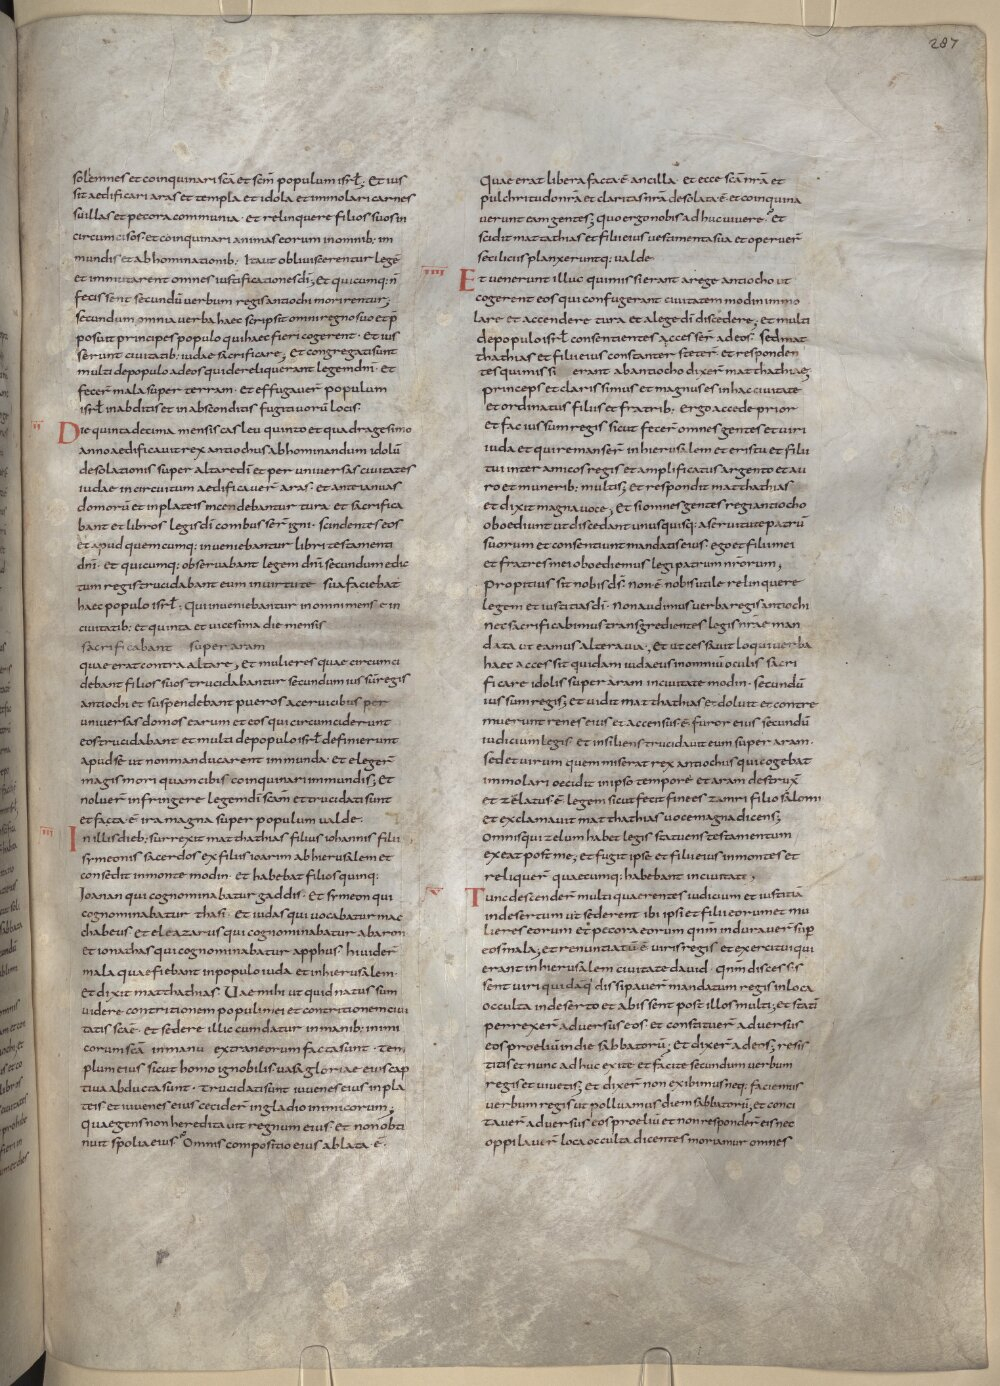 287
solemnes et coinquinari scā et scm̄ populum isrł; Et ius
sit aedificari aras et templa et idola et immolari carnes
suillas et pecora communia · et relinquere filios suos in
circumcisos · et coinquinari animas eorum in omnib; in
mundis et abhominationib; Ita ut obliviscerentur legē
et inmutarent omnes iustificationes dī; Et quicumq; n̄
fecissent secundū verbum regis antiochi morirentur;
secundum omnia verba haec scripsit omni regno suo et p̄
posuit principes populo qui haec fieri cogerent · Et ius
serunt civitatib; iudae sacrificare; Et congregati sunt
multi de populo ad eos qui dereliquerant legem dnī · et
fecer̄ mala super terram · Et effugaver̄ populum
isrł in abditis et in absconditis fugitivorū locis
II
Die quintadecima mensis casleu quinto et quadragesimo
anno aedificavit rex antiochus abhominandum idolū
desolationis super altare dī et per universas civitates
iudae in circuitum aedificaver̄ aras · et ante ianuas
domorū et in plateis incendebantur tura · et sacrifica
bant et libros legis dī combusser̄ igni · scindentes eos
et apud quemcumq; inveniebantur libri testamenti
dnī · et quicumq; observabant legem dnī secundum edic
tum regis trucidabant eum in virtute sua faciebat
haec populo isrł; Qui inveniebantur in omni mense in
civitatib; et quinta et vicesima die mensis
sacrificabant super aram
quae erat contra altare; Et mulieres quae circumci
debant filios suos trucidabantur secundum iussū regis
antiochi et suspendebant pueros a cervicibus per
universas domos earum et eos qui circumciderunt
eos trucidabant et multi de populo isrł definierunt
apud sē ut non manducarent inmunda · Et eleger̄
magis mori quam cibis coinquinari inmundis; Et
noluer̄ infringere legem dī scām et trucidati sunt
et facta ē ira magna super populum valde ·
III
In illis dieb; surrexit matthathias filius iohannis filii
symeonis sacerdos ex filiis ioarim ab hierusalem et
consedit in monte modin · et habebat filios quinq;
Ioanan qui cognominabatur gaddis · Et symeon qui
cognominabatur thasi · Et iudas qui vocabatur mac
chabeus et eleazarus qui cognominabatur abaron
et ionathas qui cognominabatur apphus · hi vider̄
mala quae fiebant in populo iuda et in hierusalem ·
Et dixit matthathias · Uae mihi ut quid natus sum
videre contritionem populi mei et contritionem civi
tatis scāe · et sedere illic cum datur in manib; inimi
corum scā in manu extraneorum facta sunt · tem
plum eius sicut homo ignobilis vasa gloriae eius cap
tiva abducta sunt · trucidati sunt iuvenes eius in pla
teis et iuvenes eius cecider̄ in gladio inimicorum;
quae gens non hereditavit regnum eius · et non obti
nuit spolia eius Omnis compositio eius ablata ē ·
Quae erat libera facta ē ancilla · et ecce scā nrā et
pulchritudo nrā et claritas nrā desolata ē · et coinquina
verunt eam gentes; quo ergo nobis adhuc vivere Et
scidit matthathias et filii eius vestimenta sua et operuer̄
se ciliciis planxeruntq; valde
IIII
Et venerunt illuc qui missi erant a rege antiocho ut
cogerent eos qui confugerant civitatem modin immo
lare et accendere tura et a lege dī discedere; et multi
de populo isrł consentientes accesser̄ ad eos · sed mat
thathias et filii eius constanter steter̄ · et responden
tes qui missi erant ab antiocho dixer̄ matthathiae;
Princeps et clarissimus et magnus es in hac civitate
et ordinatus filiis et fratrib; ergo accede prior
et fac iussum regis sicut fecer̄ omnes gentes et viri
iuda et qui remanser̄ in hierusalem et eris tu et filii
tui inter amicos regis et amplificatus argento et au
ro et munerib; multis; et respondit matthathias
et dixit magna voce; Et si omnes gentes regi antiocho
oboediunt ut discedant unusquisq; a servitute patrū
suorum et consentiunt mandatis eius · ego et filii mei
et fratres mei oboediemus legi patrum nrōrum;
Propitius sit nobis ds̄ · non ē nobis utile relinquere
legem et iustitias dī · Non audimus verba regis antiochi
nec sacrificabimus transgredientes legis nrāe man
data ut eamus altera via; Et ut cessavit loqui verba
haec accessit quidam iudaeus in omniū oculis sacri
ficare idolis super aram in civitate modin · secundū
iussum regis; et vidit matthathias et doluit et contre
muerunt renes eius et accensus ē furor eius secundū
iudicium legis et insiliens trucidavit eum super aram ·
sed et virum quem miserat rex antiochus qui cogebat
immolari occidit in ipso tempore et aram destrux̄
et zelatus ē legem sicut fecit finees zamri filio salomi
et exclamavit matthathias voce magna dicens;
Omnis qui zelum habet legis statuens testamentum
exeat post me; et fugit ipse et filii eius in montes et
reliquer̄ quaecumq; habebant in civitate;
V
Tunc descender̄ multi quaerentes iudicium et iustitiā
in desertum ut sederent ibi ipsi et filii eorum et mu
lieres eorum et pecora eorum qnm̄ induraver̄ sup̄
eos mala; et renuntiatū ē viris regis et exercitui qui
erant in hierusalem civitate david · qnm̄ discessis
sent viri quidā q̄ dissipaver̄ mandatum regis in loca
occulta in deserto et abissent post illos multi; et stati
perrexer̄ adversus eos · et constituer̄ adversus
eos proeliū in die sabbatorū; Et dixer̄ ad eos; resis
titis et nunc adhuc exite et facite secundum verbum
regis et vivetis; et dixer̄ non exibimus neq; faciemus
verbum regis ut polluamus diem sabbatorū; et conci
taver̄ adversus eos proeliū et non responder̄ eis nec
oppilaver̄ loca occulta dicentes moriamur omnes